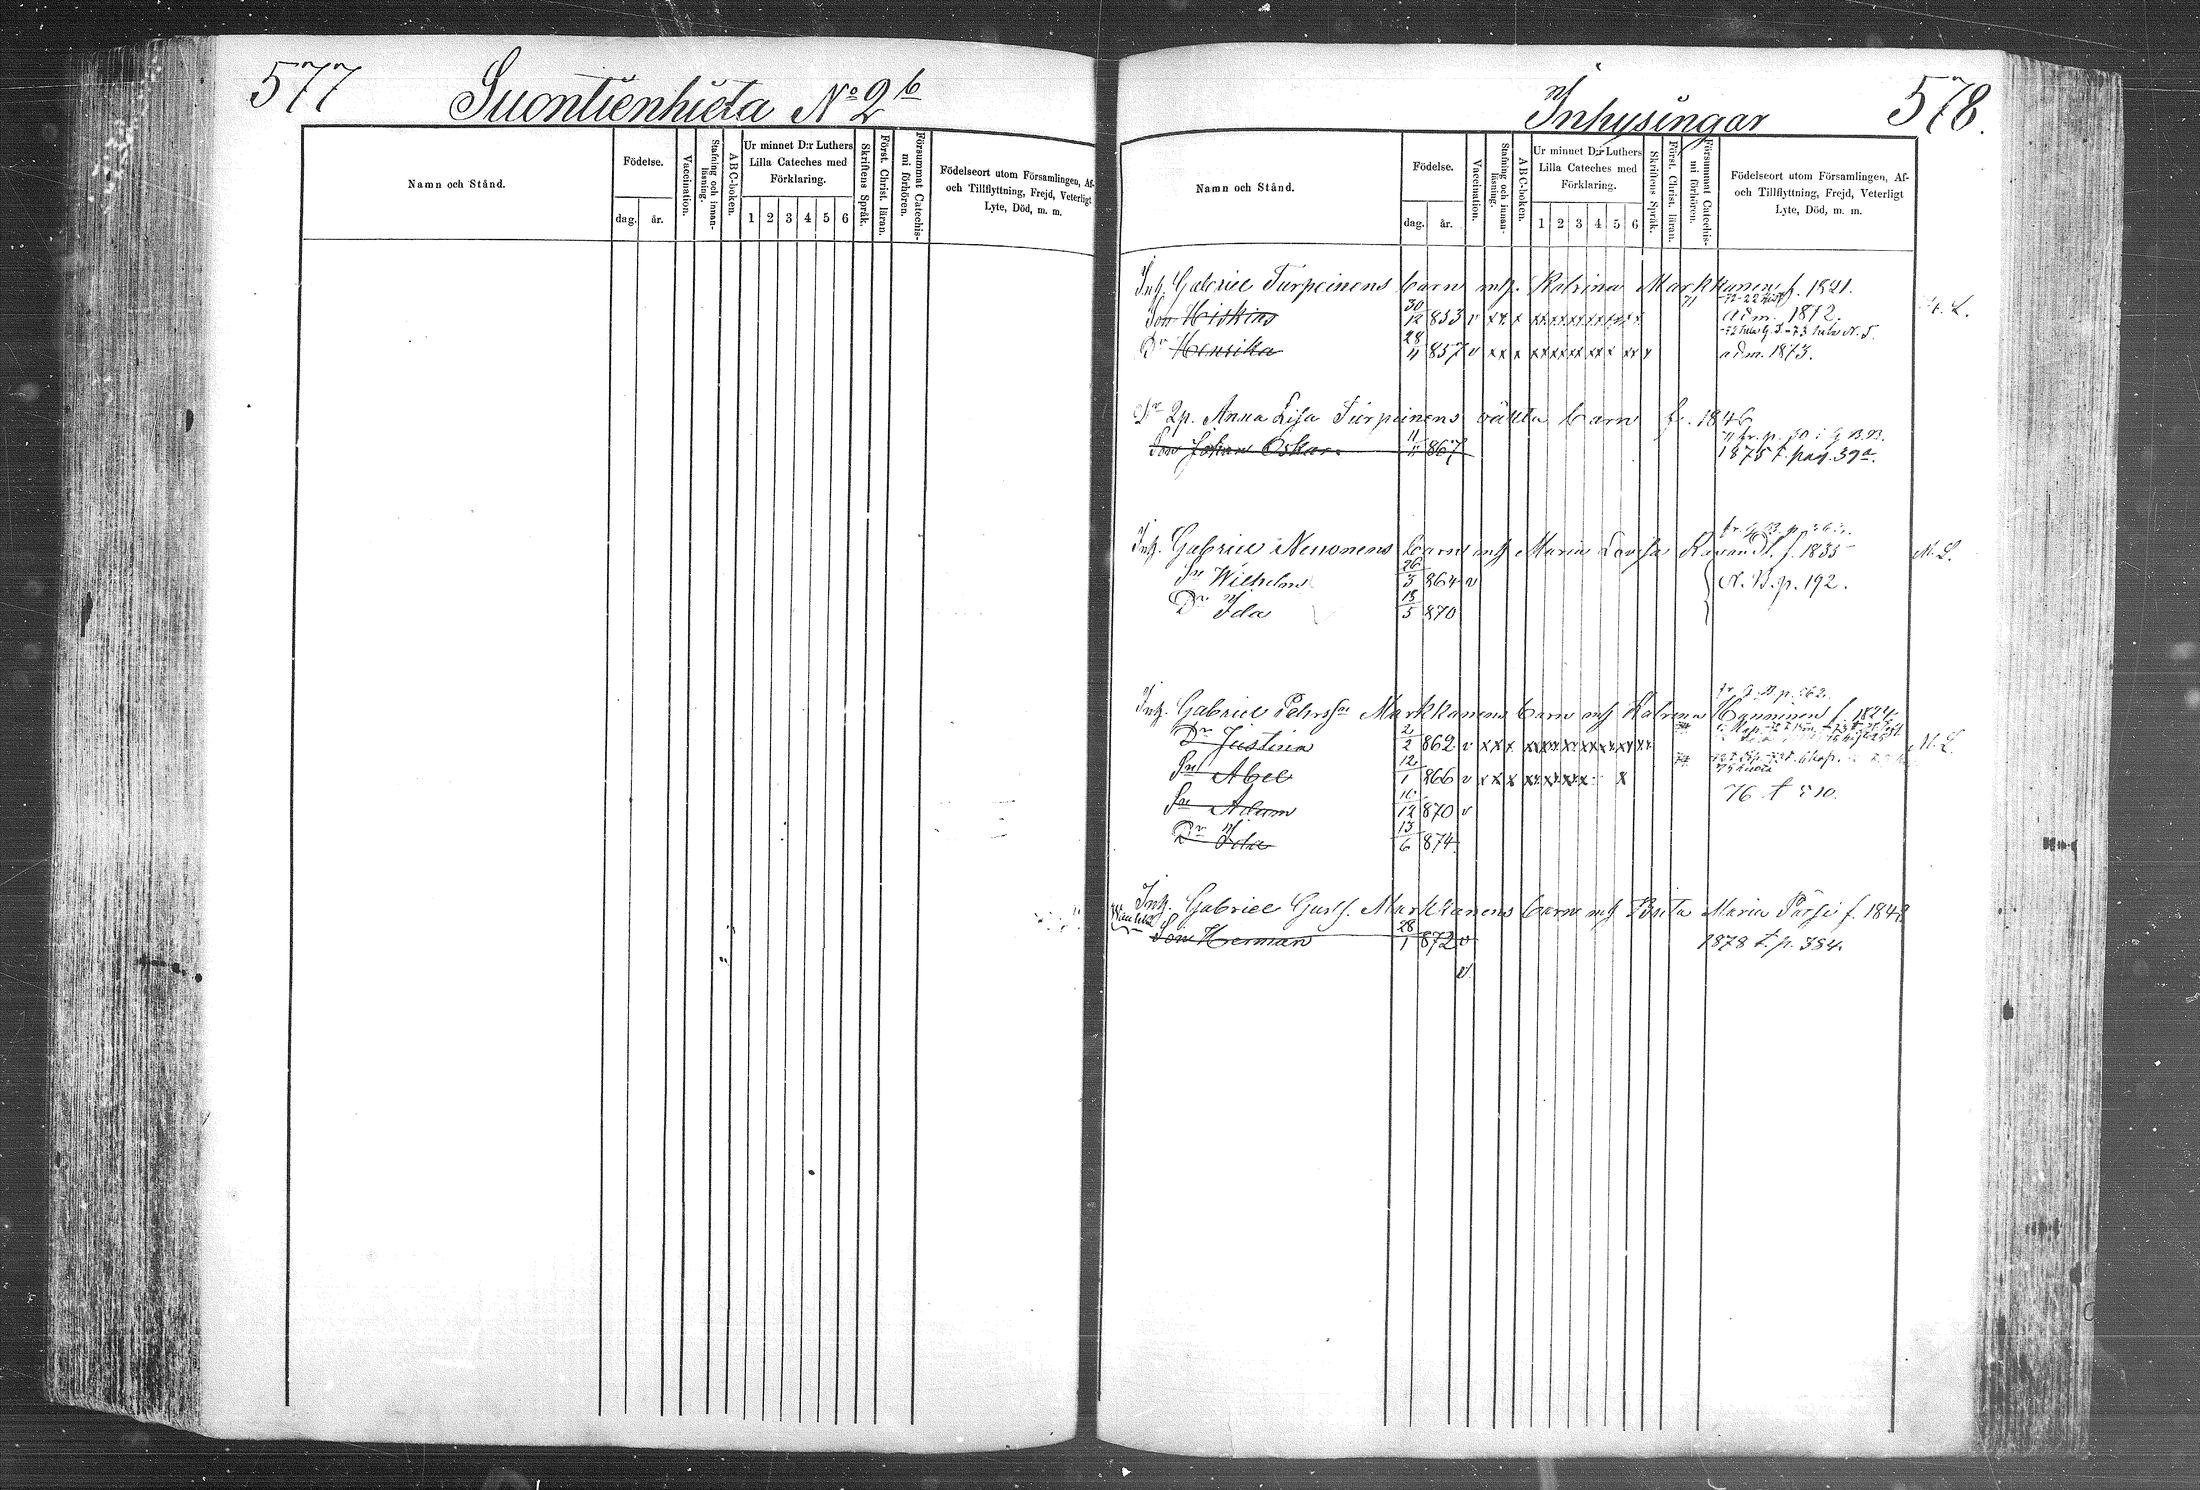 577
Suontienhieta No 2 b
Namn och Stånd.
Födelse.
dag. år.
Vaccination.
Stafning och innanläsning.
ABC-boken.
Ur minnet D:r Luthers Lilla Cateches med Förklaring.
1 2 3 4 5 6
Skriftens Språk.
Först. Christ. läran.
Försummat Catechismi förhören.
Födelseort utom Församlingen, Af- och Tillflyttning, Frejd, Veterligt Lyte, Död, m. m.
Inhysingar
578.
Namn och Stånd.
Födelse.
dag. år.
Vaccination.
Stafning och innanläsning.
ABC-boken.
Ur minnet D:r Luthers Lilla Cateches med Förklaring.
1 2 3 4 5 6
Skriftens Språk.
Först. Christ. läran.
Försummat Catechismi förhören.
Födelseort utom Församlingen, Af- och Tillflyttning, Frejd, Veterligt Lyte, Död, m. m.
Inh. Gabriel Turpeinens barn m/h. Katrina Markkanen f. 1821.
Son Hiskias 30/12 853 v xx x xxxxxxxxxxx 71 adm. 1872.
Dr Henrika 28/11 857 v xx x xxxxxx xx x xx x adm. 1873.
Dr Qp. Anna Lisa Turpeinens oäkta barn f. 1846
Son Johan Oskar. 11/11 867 1875 t. pag. 39a.
Inh. Gabriel Neuonens barn m/h Maria Lovisa f. 1835 M. L.
Sn Wilhelm 26/3 864 v N. B. p. 192.
Dr Ida 18/5 870
Inh. Gabriel Pehrss:n Markkanens barn m/h Katrina Hynninen f. 1824
Dr Justina 2/2 862 v xxx xxxxxxxxxxxx M. L.
Sn Abel 12/1 866 v xxx xxxxxx x
Sn Adam 12 870 v 76 t 510.
Dr Ida 13/6 874.
Inh. Gabriel Gust. Markkanens barn m/h Brita Maria f. 1848
Son Herman 28/1 872 v 1878 t. p. 384.
v.